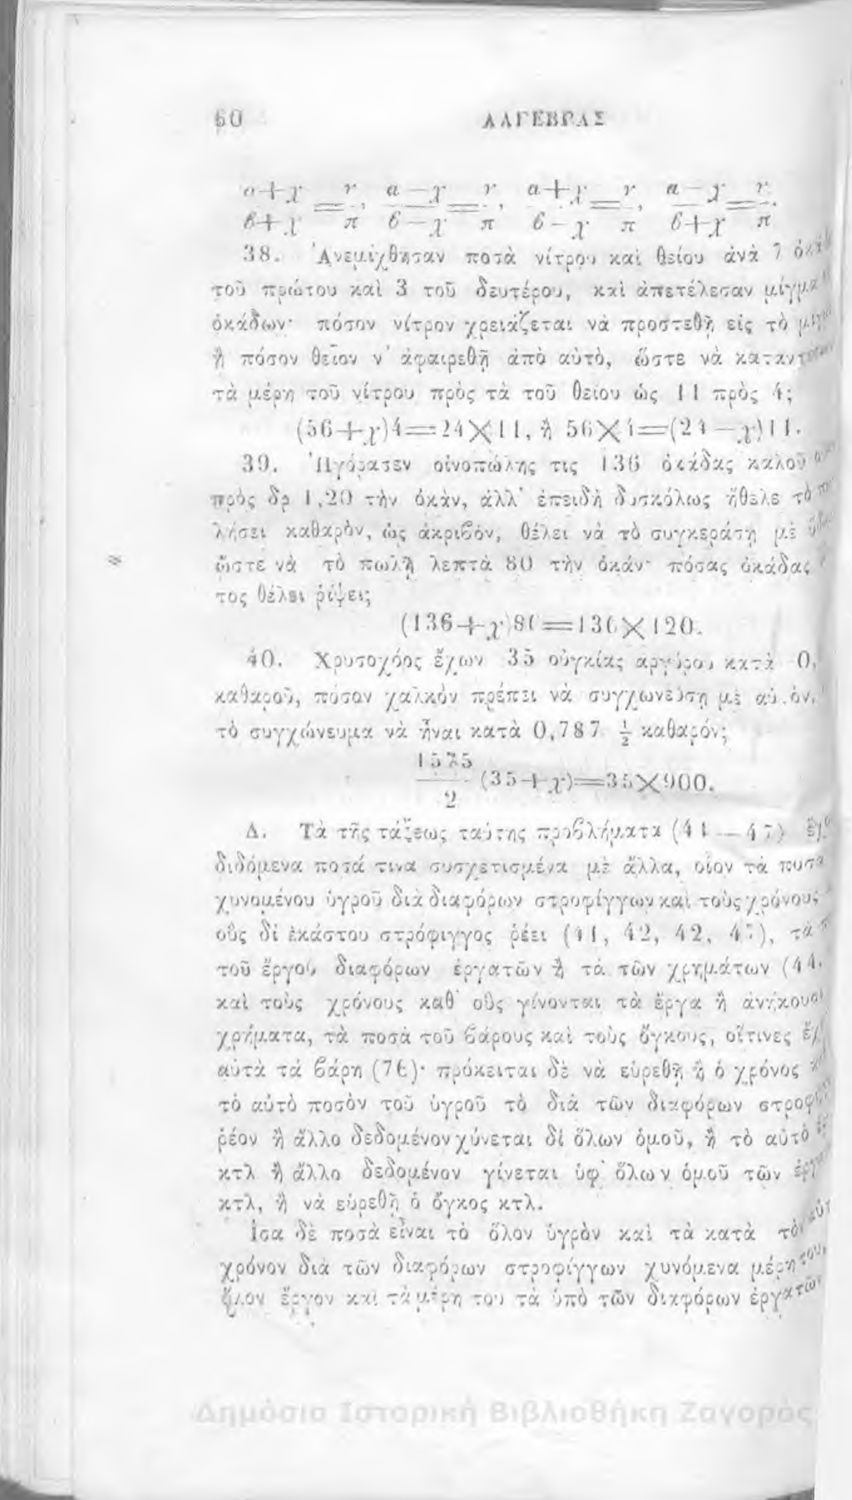 60 ΑΛΓΕΒΡΑΣ
α+χ/β+χ = ν/π, α—χ/β—χ = ν/π, α+χ/β—χ = ν/π, α—χ/β+χ = ν/π.
38. Ἀνεμίχθησαν ποσὰ νίτρου καὶ θείου ἀνὰ 7
τοῦ πρώτου καὶ 3 τοῦ δευτέρου, καὶ ἀπετέλεσαν
ὀκάδων· πόσον νίτρον χρειάζεται νὰ προστεθῇ εἰς τὸ
ἢ πόσον θεῖον ν' ἀφαιρεθῇ ἀπὸ αὐτὸ, ὥστε νὰ
τὰ μέρη τοῦ νίτρου πρὸς τὰ τοῦ θείου ὡς 11 πρὸς 4;
(56+χ)4=24×11, ἢ 56×4=(24—χ)11.
39. Ἠγόρασεν οἰνοπώλης τις 136 ὀκάδας καλοῦ
πρὸς δρ 1,20 τὴν ὀκὰν, ἀλλ' ἐπειδὴ δυσκόλως ἤθελε τὸ
λήσει καθαρὸν, ὡς ἀκριβὸν, θέλει νὰ τὸ συγκεράσῃ μὲ
ὥστε νὰ τὸ πωλῇ λεπτὰ 80 τὴν ὀκάν· πόσας ὀκάδας
τος θέλει ῥίψει;
(136+χ)80=136×120.
40. Χρυσοχόος ἔχων 35 οὐγκίας ἀργύρου κατὰ 0,
καθαροῦ, πόσον χαλκὸν πρέπει νὰ συγχωνεύσῃ μὲ αὐτὸν,
τὸ συγχώνευμα νὰ ἦναι κατὰ 0,787 ½ καθαρόν;
1575/2 (35+χ)=35×900.
Δ. Τὰ τῆς τάξεως ταύτης προβλήματα (41—47)
διδόμενα ποσά τινα συσχετισμένα μὲ ἄλλα, οἷον τὰ ποσὰ
χυνομένου ὑγροῦ διὰ διαφόρων στροφίγγων καὶ τοὺς χρόνους
οὓς δἰ ἑκάστου στρόφιγγος ῥέει (41, 42, 42, 47), τὰ
τοῦ ἔργου διαφόρων ἐργατῶν ἢ τὰ τῶν χρημάτων (44,
καὶ τοὺς χρόνους καθ' οὓς γίνονται τὰ ἔργα ἢ ἀνήκουσι
χρήματα, τὰ ποσὰ τοῦ βάρους καὶ τοὺς ὄγκους, οἵτινες
αὐτὰ τὰ βάρη (76)· πρόκειται δὲ νὰ εὑρεθῇ ἢ ὁ χρόνος
τὸ αὐτὸ ποσὸν τοῦ ὑγροῦ τὸ διὰ τῶν διαφόρων
ῥέον ἢ ἄλλο δεδομένον χύνεται δἰ ὅλων ὁμοῦ, ἢ τὸ αὐτὸ
κτλ ἢ ἄλλο δεδομένον γίνεται ὑφ' ὅλων ὁμοῦ τῶν
κτλ, ἢ νὰ εὑρεθῇ ὁ ὄγκος κτλ.
Ἴσα δὲ ποσὰ εἶναι τὸ ὅλον ὑγρὸν καὶ τὰ κατὰ τὸν
χρόνον διὰ τῶν διαφόρων στροφίγγων χυνόμενα μέρη
ὅλον ἔργον καὶ τὰ μέρη του τὰ ὑπὸ τῶν διαφόρων ἐργατῶν
Δημόσια Ιστορική Βιβλιοθήκη Ζαγοράς